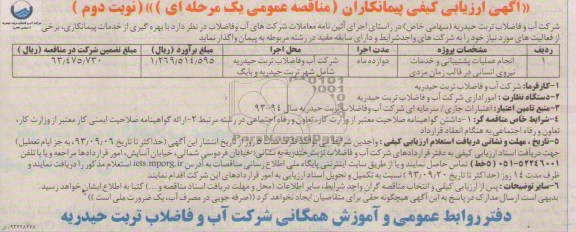 «آگهی ارزیابی کیفی پیمانکاران (مناقصه عمومی یک مرحله ای )»(نوبت دوم )
شرکت آب و فاضلاب تربت حیدریه (سهامی خاص) در راستای اجرای آئین نامه معاملات شرکت های آب وفاضلاب در نظر دارد با بهره گیری از خدمات پیمانکاری، برخی از فعالیت های مورد نیاز خود را به شرکت های واجدشرایط و دارای سابقه مفید در رشته مربوطه به پیمان واگذار نماید
ردیف مشخصات پروژه مدت اجرا محل اجرا مبلغ برآورد (ریال) مبلغ تضمین شرکت در مناقصه (ریال)
۱ انجام عملیات پشتیبانی و خدمات نیروی انسانی در قالب زمان مزدی دوازده ماه شرکت آب وفاضلاب تربت حیدریه شامل شهر تربت حیدریه و بایگ ۱/۲۶۹/۵۱۴/۵۹۵ ۶۳/۴۷۵/۷۳۰
۱-کارفرما: شرکت آب و فاضلاب تربت حیدریه
۲-دستگاه نظارت : امور اداری شرکت آب و فاضلاب تربت حیدریه
۳-منبع تامین اعتبار: اعتبارات جاری/ سرمایه ای شرکت آب وفاضلاب تربت حیدریه سال ۹۴-۹۳
۴-شرایط خاص مناقصه گر: ۱-داشتن گواهینامه صلاحیت معتبر از وزارت کار، تعاون و رفاه اجتماعی در رشته مرتبط ۲-ارائه گواهینامه صلاحیت ایمنی کار معتبر از وزارت کار، تعاون و رفاه اجتماعی به هنگام انعقاد قرارداد
۵-تاریخ ، مهلت و نشانی دریافت استعلام ارزیابی کیفی : واجدین شرایط می توانند
روز از تاریخ انتشار این آگهی (حداکثر تا تاریخ ۹۳/۰۹/۰۶، به جز ایام تعطیل) جهت دریافت اسناد ارزیابی کیفی به دفتر قراردادهای شرکت آب و فاضلاب تربت حیدریه به نشانی: خیابان فردوسی شمالی، خیابان آسایش، امور قراردادها مراجعه و یا با تلفن
تماس حاصل نمایند و یا از طریق سایت اینترنتی پایگاه ملی اطلاع رسانی مناقصات به آدرس iets.mporg.ir استعلام مذکور را دریافت نمایند و ظرف مدت ۱۴ روز (حداکثر تا تاریخ ۹۳/۰۹/۲۰) نسبت به تکمیل و تحویل اسناد ارزیابی به امور قراردادهای این شرکت اقدام نمایند
۶-سایر توضیحات : پس از ارزیابی کیفی و انتخاب مناقصه گران واجد شرایط، سایر اطلاعات (محل و مهلت دریافت اسناد مناقصه و ...) کتبا به اطلاع ایشان خواهد رسید. بدیهی است ارسال مدارک در پاسخ به این آگهی هیچگونه حقی برای متقاضیان ایجاد نخواهد کرد (صرفه جویی در مصرف آب، یک ضرورت ملی است )
دفتر روابط عمومی و آموزش همگانی شرکت آب و فاضلاب تربت حیدریه